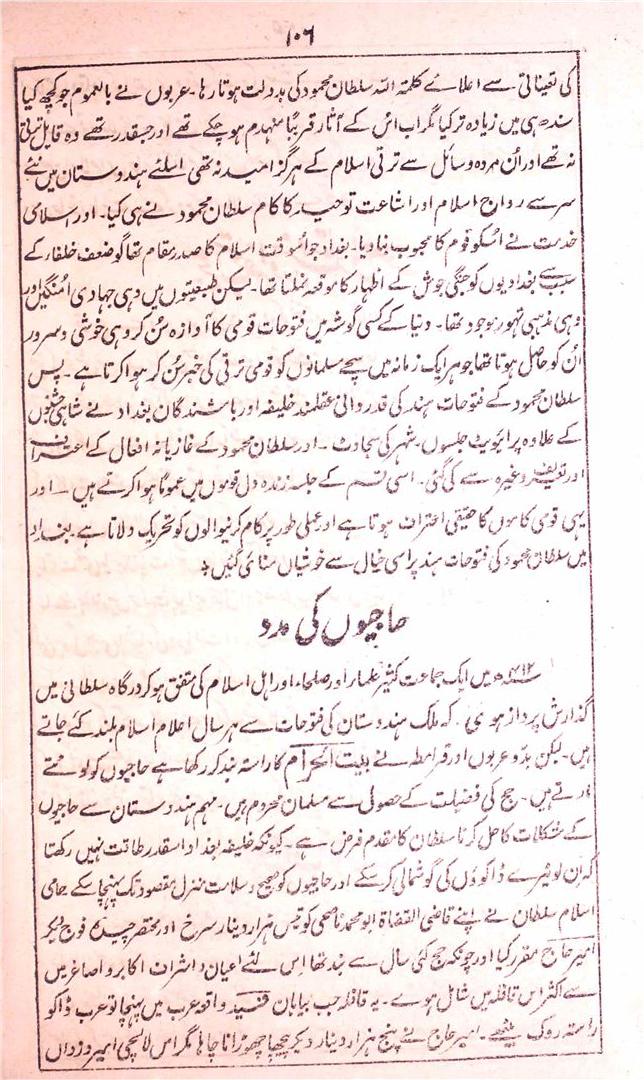 ۱۰۶
کی تعیناتی سے اعلائے کلمتہ اللہ سلطان محمود کی بدولت ہوتا رہا۔ عربوں نے بالعموم جو کچھ کیا
سندھ ہی میں زیادہ تر کیا مگر اب اس کے آثار قریباً منہدم ہو چکے تھے اور جسقدر تھے وہ قابل ترقی
نہ تھے اور اُن مردہ وسائل سے ترقی اسلام کے ہرگز امید نہ تھی اسلئے ہندوستان میں نئے
سر سے رواج اسلام اور اشاعت توحید کا کام سلطان محمود نے ہی کیا۔ اور اسلامی
خدمت نے اُسکو قوم کا محبوب بنا دیا۔ بغداد جو اُسوقت اسلام کا صدر مقام تھا گو ضعف خلفاء کے
سبب سے بغدادیوں کو جنگی جوش کے اظہار کا موقعہ نہ ملتا تھا۔ لیکن طبیعتوں میں وہی جہادی اُمنگیں اور
وہی مذہبی تہور موجود تھا۔ دنیا کے کسی گوشہ میں فتوحات قومی کا آوازہ سُن کر وہی خوشی و سرور
اُن کو حاصل ہوتا تھا جو ہر ایک زمانہ میں سچے مسلمانوں کو قومی ترقی کی خبر سُن کر ہوا کرتا ہے۔ پس
سلطان محمود کے فتوحات ہند کی قدردانی عقلمند خلیفہ اور باشندگان بغداد نے شاہی جشنوں
کے علاوہ پرائیویٹ جلسوں۔ شہر کی سجاوٹ۔ اور سلطان محمود کے غازیانہ افعال کے اعتراف
اور تعریف وغیرہ سے کی گئی۔ اسی قسم کے جلسہ زندہ دل قوموں میں عموماً ہوا کرتے ہیں۔ اور
یہی قومی کاموں کا حقیقی اعتراف ہوتا ہے اور عملی طور پر کام کرنیوالوں کو تحریک دلاتا ہے۔ بغداد
میں سلطان محمود کی فتوحات ہند پر اسی خیال سے خوشیاں منائی گئیں +
حاجیوں کی مدد
۴۱۲ھ میں ایک جماعت کثیر علماء اور صلحاء اور اہل اسلام کی متفق ہو کر درگاہ سلطانی میں
گذارش پرداز ہوئی۔ کہ ملک ہندوستان کی فتوحات سے ہر سال اعلام اسلام بلند کئے جاتے
ہیں۔ لیکن بدو عربوں اور قرامطہ نے بیت الحرام کا راستہ بند کر رکھا ہے حاجیوں کو لوٹتے
مارتے ہیں۔ حج کی فضیلت کے حصول سے مسلمان محروم ہیں۔ مہم ہندوستان سے حاجیوں
کے مشکلات کا حل کرنا سلطان کا مقدم فرض ہے۔ کیونکہ خلیفہ بغداد اسقدر طاقت نہیں رکھتا
کہ اِن لوٹیرے ڈاکوؤں کی گوشمالی کر سکے اور حاجیوں کو صحیح و سلامت منزل مقصود تک پہنچا سکے حامی
اسلام سلطان نے اپنے قاضی القضاۃ ابو محمد ناصحی کو تیس ہزار دینار سرخ اور مختصر چیدہ فوج دیکر
امیر حاج مقرر کیا اور چونکہ حج کئی سال سے بند تھا اِس لئے اعیان و اشراف اکابر و اصاغر میں
سے اکثر اس قافلہ میں شامل ہوے۔ یہ قافلہ جب بیابان فید واقعہ عرب میں پہنچا تو عرب ڈاکو
راستہ روک بیٹھے۔ امیر حاج نے پنج ہزار دینار دیکر پیچھا چھوڑانا چاہا مگر اس لالچی امیر دزداں